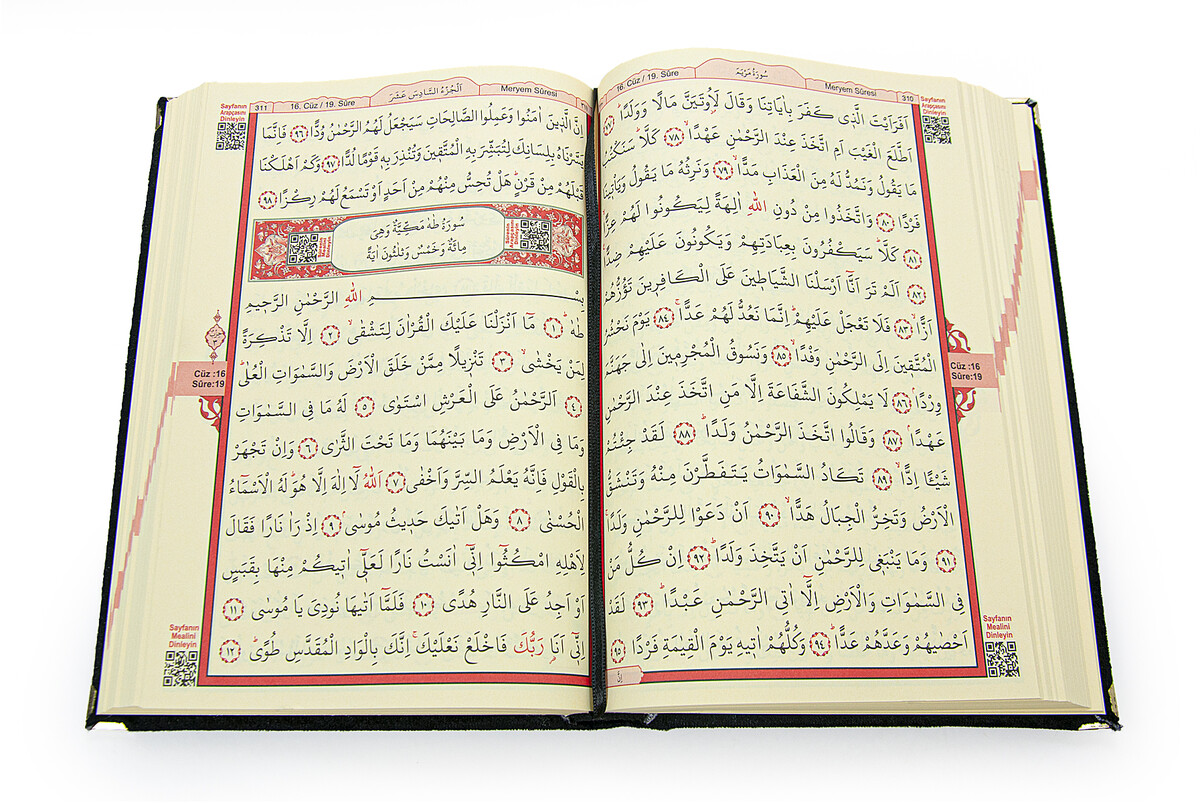 16. Cüz / 19. Sûre
سُورَةُ مَرْيَمَ
Meryem Sûresi
310
Sayfanın
Arapçasını
Dinleyin
اَفَرَاَيْتَ الَّذٖي كَفَرَ بِاٰيَاتِنَا وَقَالَ لَاُوتَيَنَّ مَالًا وَوَلَدًاؕ ﴿٧٧﴾
اَطَّلَعَ الْغَيْبَ اَمِ اتَّخَذَ عِنْدَ الرَّحْمٰنِ عَهْدًاۙ ﴿٧٨﴾ كَلَّاؕ سَنَكْتُبُ
مَا يَقُولُ وَنَمُدُّ لَهُ مِنَ الْعَذَابِ مَدًّاۙ ﴿٧٩﴾ وَنَرِثُهُ مَا يَقُولُ وَيَأْتٖينَا
فَرْدًا ﴿٨٠﴾ وَاتَّخَذُوا مِنْ دُونِ اللّٰهِ اٰلِهَةً لِيَكُونُوا لَهُمْ عِزًّا
﴿٨١﴾ كَلَّاؕ سَيَكْفُرُونَ بِعِبَادَتِهِمْ وَيَكُونُونَ عَلَيْهِمْ ضِدًّا
﴿٨٢﴾ اَلَمْ تَرَ اَنَّٓا اَرْسَلْنَا الشَّيَاطٖينَ عَلَى الْكَافِرٖينَ تَؤُزُّهُمْ
اَزًّاۙ ﴿٨٣﴾ فَلَا تَعْجَلْ عَلَيْهِمْؕ اِنَّمَا نَعُدُّ لَهُمْ عَدًّاۚ ﴿٨٤﴾ يَوْمَ نَحْشُرُ
الْمُتَّقٖينَ اِلَى الرَّحْمٰنِ وَفْدًاۙ ﴿٨٥﴾ وَنَسُوقُ الْمُجْرِمٖينَ اِلٰى جَهَنَّمَ
وِرْدًاۘ ﴿٨٦﴾ لَا يَمْلِكُونَ الشَّفَاعَةَ اِلَّا مَنِ اتَّخَذَ عِنْدَ الرَّحْمٰنِ
عَهْدًاۘ ﴿٨٧﴾ وَقَالُوا اتَّخَذَ الرَّحْمٰنُ وَلَدًاؕ ﴿٨٨﴾ لَقَدْ جِئْتُمْ
شَيْـًٔا اِدًّاۙ ﴿٨٩﴾ تَكَادُ السَّمٰوَاتُ يَتَفَطَّرْنَ مِنْهُ وَتَنْشَقُّ
الْاَرْضُ وَتَخِرُّ الْجِبَالُ هَدًّاۙ ﴿٩٠﴾ اَنْ دَعَوْا لِلرَّحْمٰنِ وَلَدًاۚ
﴿٩١﴾ وَمَا يَنْبَغٖي لِلرَّحْمٰنِ اَنْ يَتَّخِذَ وَلَدًاؕ ﴿٩٢﴾ اِنْ كُلُّ مَنْ
فِي السَّمٰوَاتِ وَالْاَرْضِ اِلَّٓا اٰتِي الرَّحْمٰنِ عَبْدًاؕ ﴿٩٣﴾ لَقَدْ
اَحْصٰيهُمْ وَعَدَّهُمْ عَدًّاؕ ﴿٩٤﴾ وَكُلُّهُمْ اٰتٖيهِ يَوْمَ الْقِيٰمَةِ فَرْدًا ﴿٩٥﴾
اِنَّ
Cüz :16
Sûre:19
Sayfanın
Mealini
Dinleyin
311
16. Cüz / 19. Sûre
اَلْجُزْءُ السَّادِسَ عَشَرَ
Meryem Sûresi
Sayfanın
Arapçasını
Dinleyin
اِنَّ الَّذٖينَ اٰمَنُوا وَعَمِلُوا الصَّالِحَاتِ سَيَجْعَلُ لَهُمُ الرَّحْمٰنُ وُدًّا ﴿٩٦﴾ فَاِنَّمَا
يَسَّرْنَاهُ بِلِسَانِكَ لِتُبَشِّرَ بِهِ الْمُتَّقٖينَ وَتُنْذِرَ بِهٖ قَوْمًا لُدًّا ﴿٩٧﴾ وَكَمْ اَهْلَكْنَا
قَبْلَهُمْ مِنْ قَرْنٍؕ هَلْ تُحِسُّ مِنْهُمْ مِنْ اَحَدٍ اَوْ تَسْمَعُ لَهُمْ رِكْزًا ﴿٩٨﴾
سُورَةُ طٰهٰ مَكِّيَّةٌ وَهِيَ
مِائَةٌ وَخَمْسٌ وَثَلٰثُونَ اٰيَةً
بِسْمِ اللّٰهِ الرَّحْمٰنِ الرَّحٖيمِ
طٰهٰۜ ﴿١﴾ مَٓا اَنْزَلْنَا عَلَيْكَ الْقُرْاٰنَ لِتَشْقٰىۙ ﴿٢﴾ اِلَّا تَذْكِرَةً
لِمَنْ يَخْشٰىۙ ﴿٣﴾ تَنْزٖيلًا مِمَّنْ خَلَقَ الْاَرْضَ وَالسَّمٰوَاتِ الْعُلٰىؕ
﴿٤﴾ اَلرَّحْمٰنُ عَلَى الْعَرْشِ اسْتَوٰى ﴿٥﴾ لَهُ مَا فِي السَّمٰوَاتِ
وَمَا فِي الْاَرْضِ وَمَا بَيْنَهُمَا وَمَا تَحْتَ الثَّرٰى ﴿٦﴾ وَاِنْ تَجْهَرْ
بِالْقَوْلِ فَاِنَّهُ يَعْلَمُ السِّرَّ وَاَخْفٰى ﴿٧﴾ اَللّٰهُ لَٓا اِلٰهَ اِلَّا هُوَؕ لَهُ الْاَسْمَٓاءُ
الْحُسْنٰى ﴿٨﴾ وَهَلْ اَتٰيكَ حَدٖيثُ مُوسٰىۘ ﴿٩﴾ اِذْ رَاٰ نَارًا فَقَالَ
لِاَهْلِهِ امْكُثُٓوا اِنّٖٓي اٰنَسْتُ نَارًا لَعَلّٖٓي اٰتٖيكُمْ مِنْهَا بِقَبَسٍ
اَوْ اَجِدُ عَلَى النَّارِ هُدًى ﴿١٠﴾ فَلَمَّٓا اَتٰيهَا نُودِيَ يَا مُوسٰى ﴿١١﴾
اِنّٖٓي اَنَا رَبُّكَ فَاخْلَعْ نَعْلَيْكَۚ اِنَّكَ بِالْوَادِ الْمُقَدَّسِ طُوًىؕ ﴿١٢﴾
Cüz :16
Sûre:19
Sayfanın
Mealini
Dinleyin